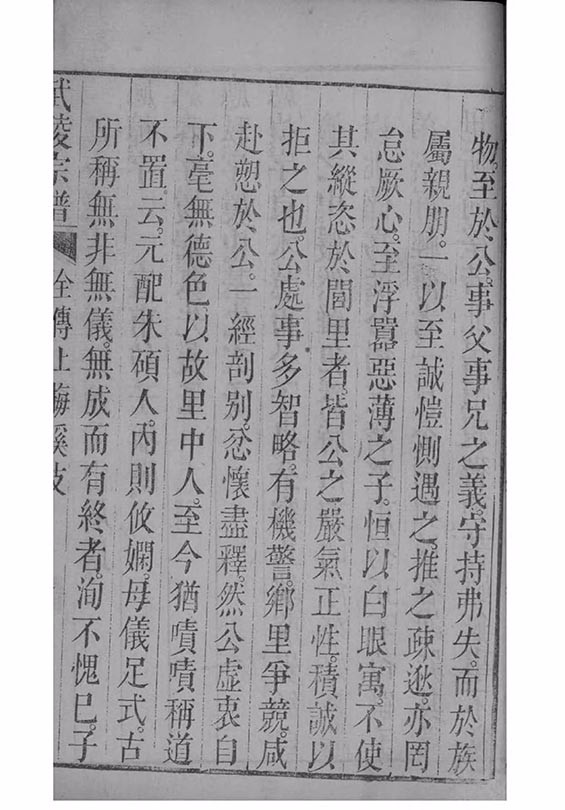 物。至於公。事父事兄之義。守持弗失。而於族
屬親朋。一以至誠愷惻遇之。推之疎逖。亦罔
怠厥心。至浮囂惡薄之子。恒以白眼寓。不使
其縱恣於閭里者。皆公之嚴氣正性。積誠以
拒之也。公處事多智略。有機警。鄉里爭競。咸
赴愬於公。一經剖别。忿懷盡釋。然公虛衷自
下。毫無德色。以故里中人。至今猶嘖嘖稱道
不置云。元配朱碩人。內則攸嫻。母儀足式。古
所稱無非無儀。無成而有終者。洵不愧已。子
武陵宗譜 傳上梅溪支